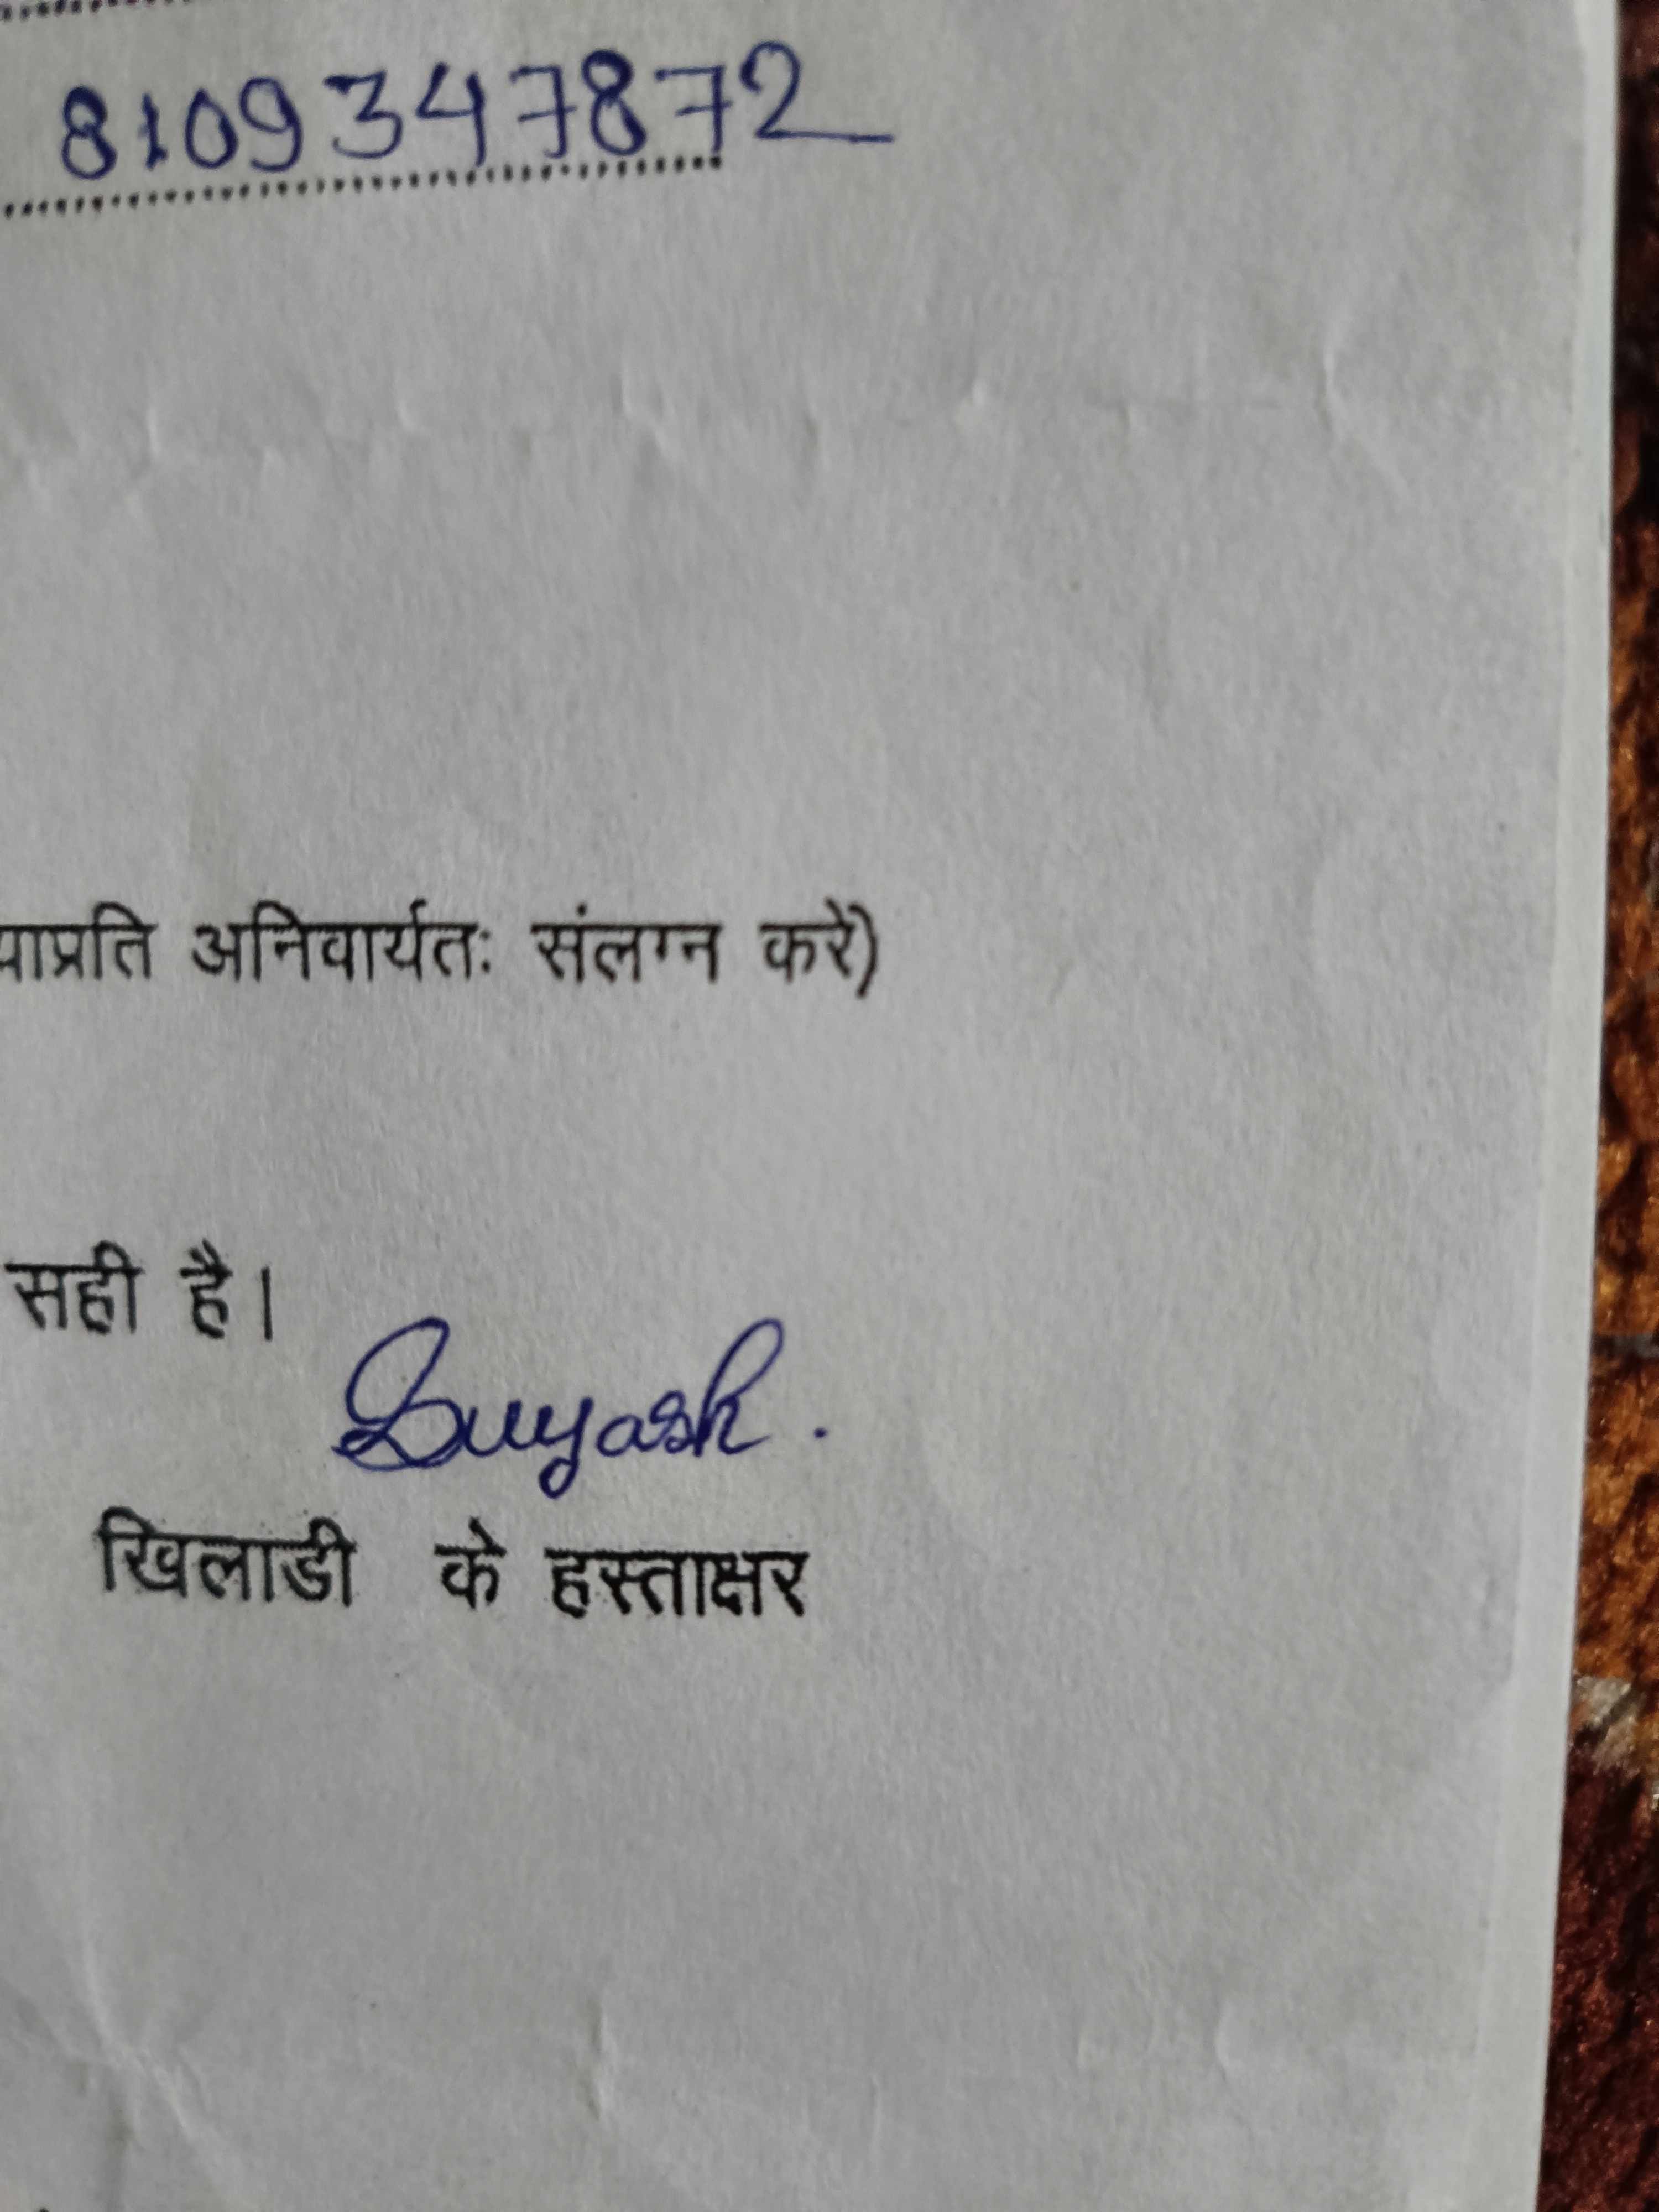 8109347872
याप्रति अनिवार्यतः संलग्न करें)
सही है।
Suyash.
खिलाडी के हस्ताक्षर